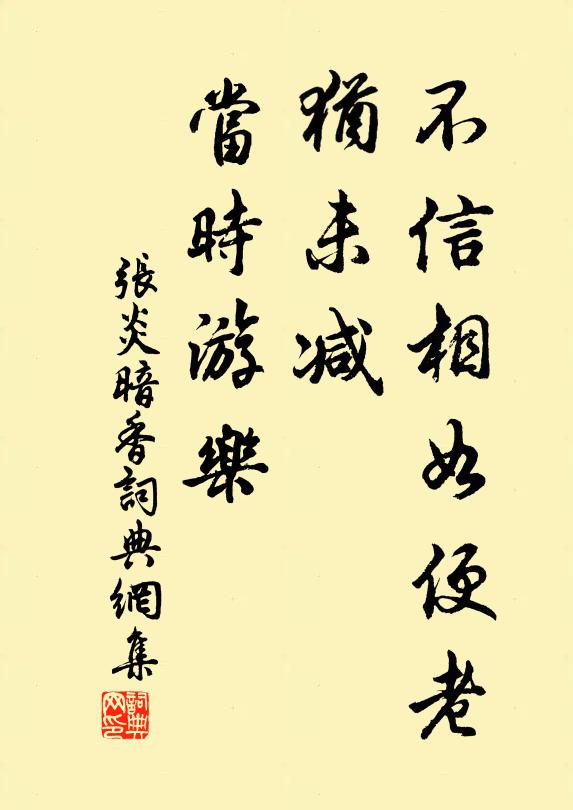 不信相如便老
猶未减
當時游樂
張炎暗香詞典網集
詞典
网印